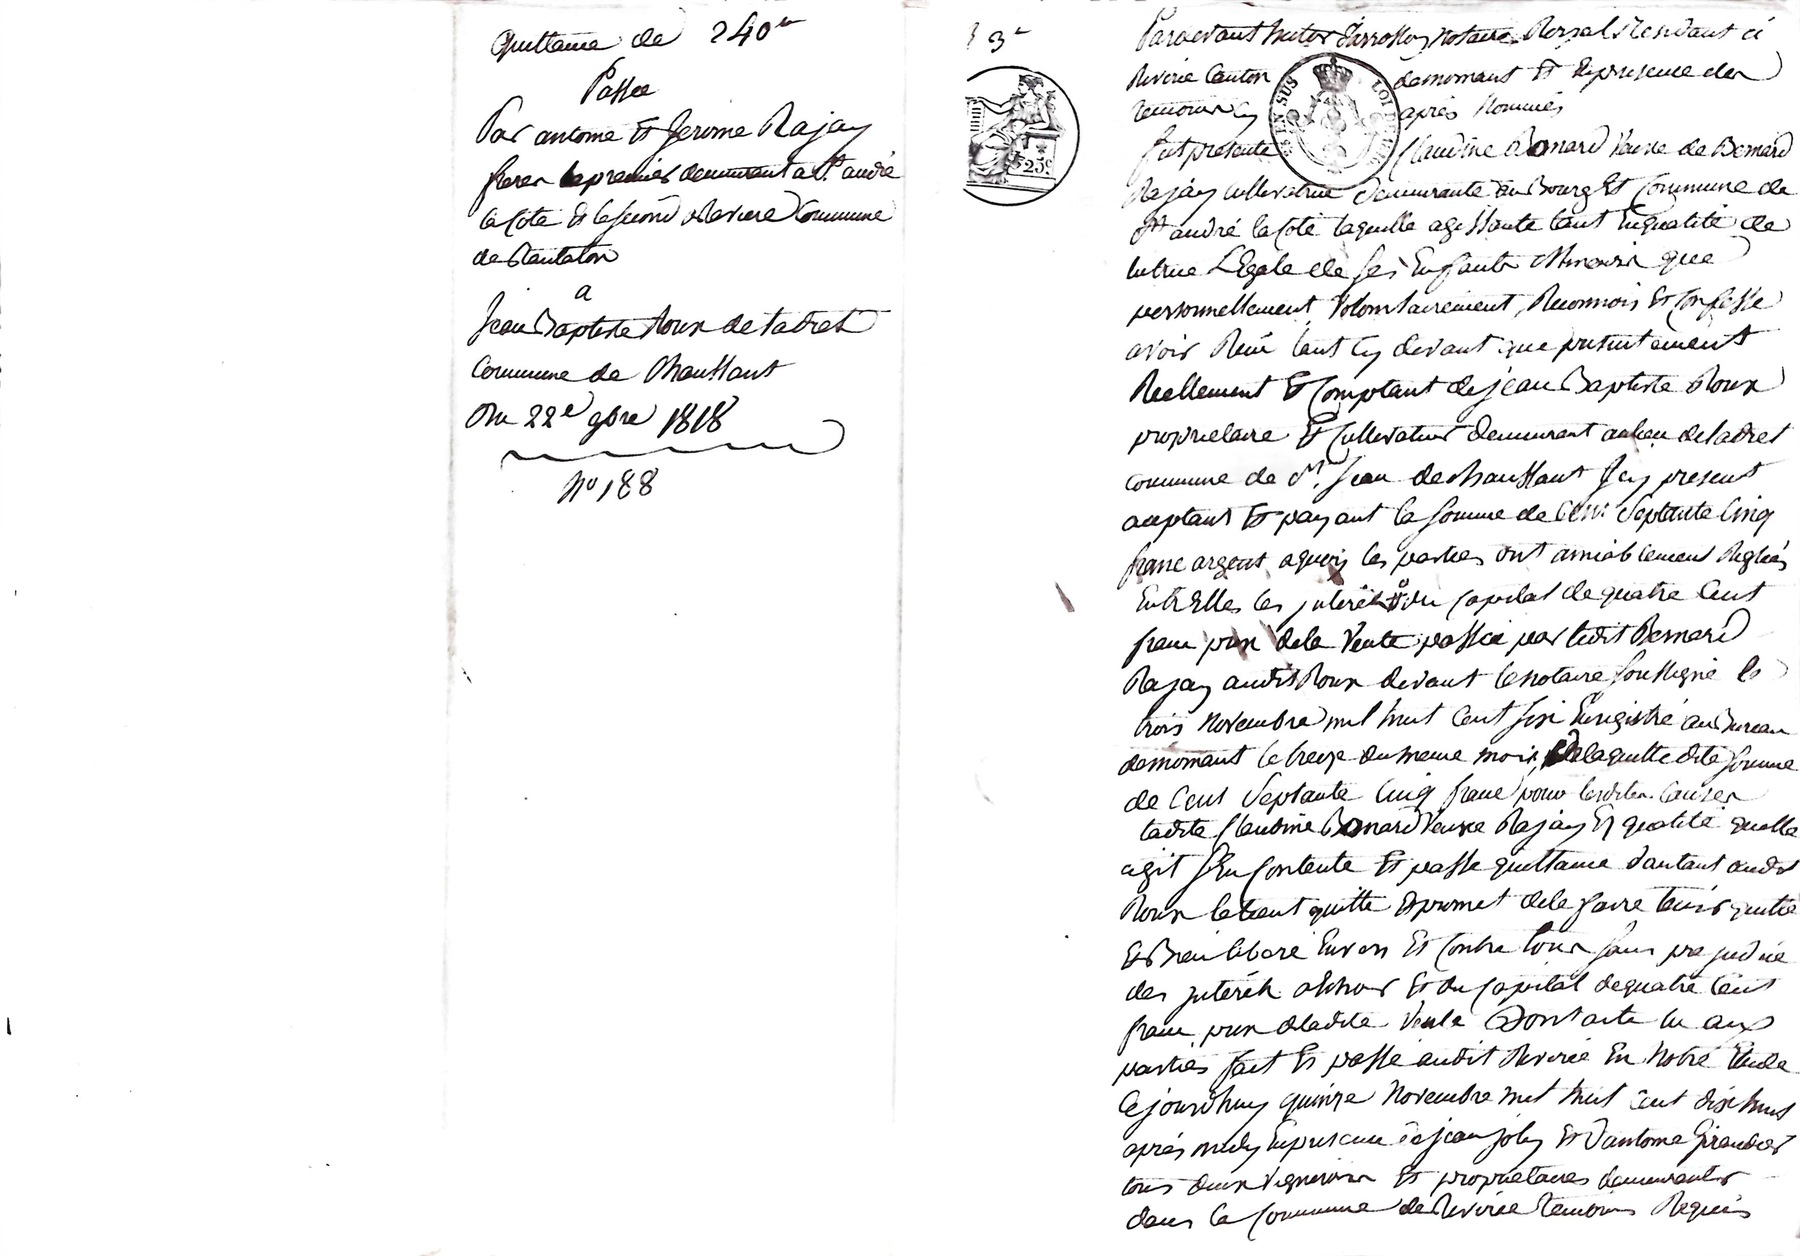 Quittance de 240#
Passée
Par antoine Et Jerome Rajay
freres le premier demeurant a St. andré
la Cote Et le second a Riviere Commune
de
a
Jean Baptiste Roux de ladret
Commune de Chaussant
Du 22e 9bre 1818
No 188
3e
Pardevant notaire Royal Residant à
Riverie Canton de mornant Et En presence des
temoins cy après Nommés
fut presente Claudine Bonard Veuve de Bernard
Rajay cultivatrice demeurante au Bourg Et Commune de
St andré la Cote laquelle agissante tant En qualité de
tutrice Légale de ses Enfants Mineurs que
personnellement Volontairement, Reconnois Et Confesse
avoir Recu tant Cy devant que presentement
Reellement Et Comptant de jean Baptiste Roux
proprietaire Et Cultivateur demeurant au lieu de ladret
commune de St. Jean de Chaussant Icy present
aceptant Et payant la somme de Cent Septante Cinq
franc argent a quoy les parties ont amiablement Reglés
Entr Elles les interêts du Capital de quatre Cent
franc prix de la Vente passée par ledit Bernard
Rajay audit Roux devant le notaire soussigné le
trois Novembre mil huit Cent six Enregistré au Bureau
de mornant le treize du meme mois, De laquelle dite somme
de Cent Septante Cinq franc pour lesdites Causes
ladite Claudine Bonard Veuve Rajay Et qualité quelle
agit s'En Contente Et passe quittance d'autant audit
Roux le tient quitte Et promet de le faire tenir quitte
Et Bien libéré Envers Et Contre tous sans prejudice
des interêts a Echoir Et du Capital de quatre Cent
franc prix de ladite Vente Dont acte lu aux
parties fait Et passé audit Riverie En Notre Etude
Cejourdhuy quinze Novembre mil huit Cent dix huit
après midy En presence de jean joly Et d'antoine Giraudier
tous deux vignerons Et proprietaires demeurants
dans la Commune de Riverie temoins Requis
25c